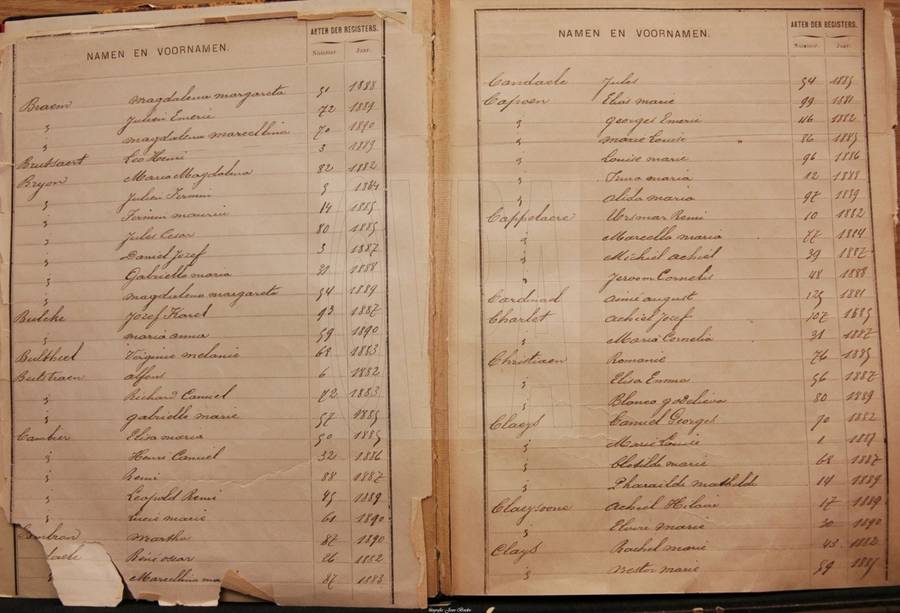 NAMEN EN VOORNAMEN.
AKTEN DER REGISTERS.
Nummer. Jaar.
Braem magdalena margareta 51 1888
" Julien Emeric 72 1889
" magdalena marcellina 70 1890
Bruksaert Leo Henri 3 1889
Bryon Maria Magdalena 82 1882
" Julien Firmin 5 1884
" Firmin maurice 14 1885
" Jules Cesar 80 1885
" Daniel Jozef 3 1887
" Gabrielle maria 31 1888
" magdalena margareta 54 1889
Bulcke Jozef Karel 93 1887
" maria anna 59 1890
Bultheel Virginie melanie 68 1883
Bulstraen alfons 6 1882
" Richard Camiel 72 1883
" gabrielle marie 57 1885
Cambier Elisa maria 50 1885
" Henri Camiel 32 1886
" Remi 88 1887
" Leopold Remi 45 1889
" Lucie marie 61 1890
martha 87 1890
René oscar 26 1882
" Marcellina 87 1883
NAMEN EN VOORNAMEN.
AKTEN DER REGISTERS.
Nummer. Jaar.
Candaele Jules 54 1885
Capoen Elias marie 99 1881
" georges Emeric 46 1882
" marie Louise 86 1885
" Louise marie 96 1886
" Irma maria 12 1888
" alida maria 97 1889
Cappelaere Ursmar Remi 10 1882
" Marcella maria 77 1884
" Michiel achiel 39 1887
" Jeroom Cornelis 48 1888
Cardinael aimé august 125 1881
Charlet achiel Jozef 107 1885
" Maria Cornelia 31 1887
Christiaen Romanie 76 1885
" Elisa Emma 56 1887
" Blanca godelieve 80 1889
Claeys Camiel Georges 70 1882
" Marie Louise 1 1887
" Clotilde marie 68 1887
" Pharailde mathilde 14 1889
Claeysoone achiel Hilaire 17 1889
" Elvire marie 30 1890
Clays Rachel marie 43 1882
" nestor marie 59 1885